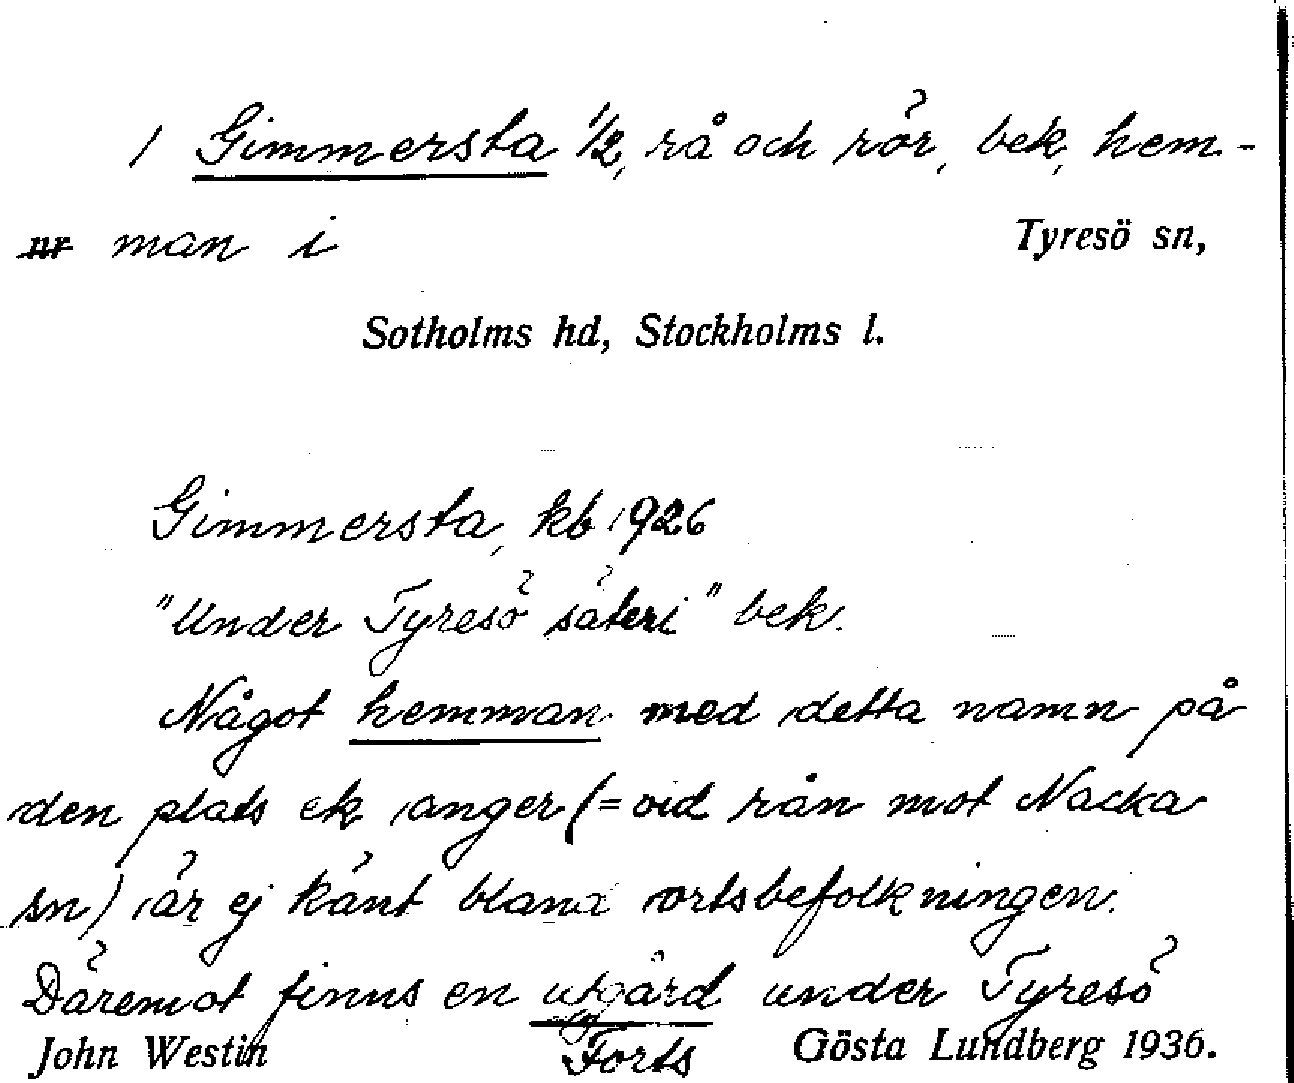 1 Gimmersta 1/2, rå och rör, bek, hem-
nr man i Tyresö sn,
Sotholms hd, Stockholms l.
Gimmersta, kb 1926
"Under Tyresö säteri" bek.
Något hemman med detta namn på
den plats ek anger (= vid rån mot Nacka
sn) är ej känt bland ortsbefolkningen.
Däremot finns en utgård under Tyresö
John Westin Forts Gösta Lundberg 1936.